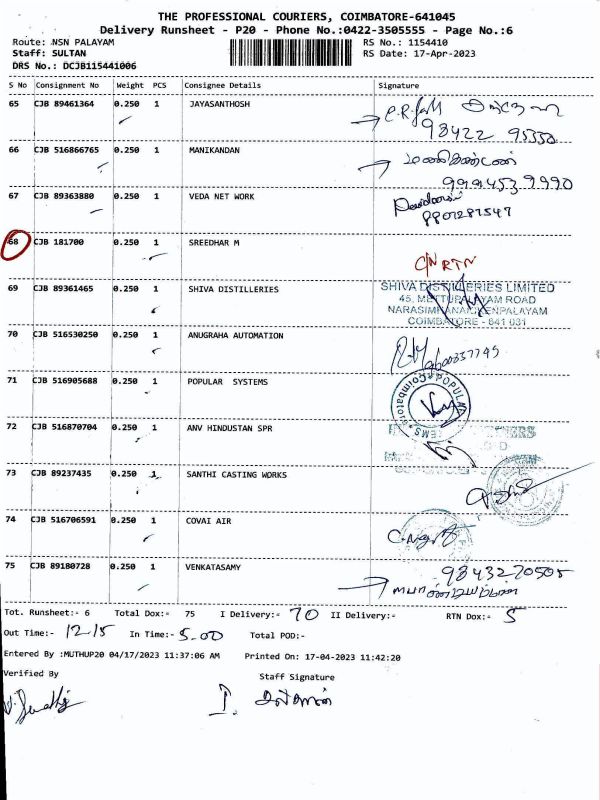 THE PROFESSIONAL COURIERS, COIMBATORE-641045
Delivery Runsheet - P20 - Phone No.:0422-3505555 - Page No.:6
Route: NSN PALAYAM
RS No.: 1154410
Staff: SULTAN
RS Date: 17-Apr-2023
DRS No.: DCJB115441006
S No Consignment No Weight PCS Consignee Details Signature
65 CJB 89461364 0.250 1 JAYASANTHOSH
98422 95550
66 CJB 516866765 0.250 1 MANIKANDAN
மணிகண்டன்
9994539990
67 CJB 89363880 0.250 1 VEDA NET WORK
68 CJB 181700 0.250 1 SREEDHAR M
C/N RTN
69 CJB 89361465 0.250 1 SHIVA DISTILLERIES
SHIVA DISTILLERIES LIMITED
45, METTUPALAYAM ROAD
NARASIMHANAICKENPALAYAM
COIMBATORE - 641 031
70 CJB 516530250 0.250 1 ANUGRAHA AUTOMATION
71 CJB 516905688 0.250 1 POPULAR SYSTEMS
72 CJB 516870704 0.250 1 ANV HINDUSTAN SPR
73 CJB 89237435 0.250 1 SANTHI CASTING WORKS
74 CJB 516706591 0.250 1 COVAI AIR
75 CJB 89180728 0.250 1 VENKATASAMY
98432 70505
Tot. Runsheet:- 6 Total Dox:- 75 I Delivery:- 70 II Delivery:- RTN Dox:- 5
Out Time:- 12-15 In Time:- 5-00 Total POD:-
Entered By :MUTHUP20 04/17/2023 11:37:06 AM Printed On: 17-04-2023 11:42:20
Verified By
Staff Signature